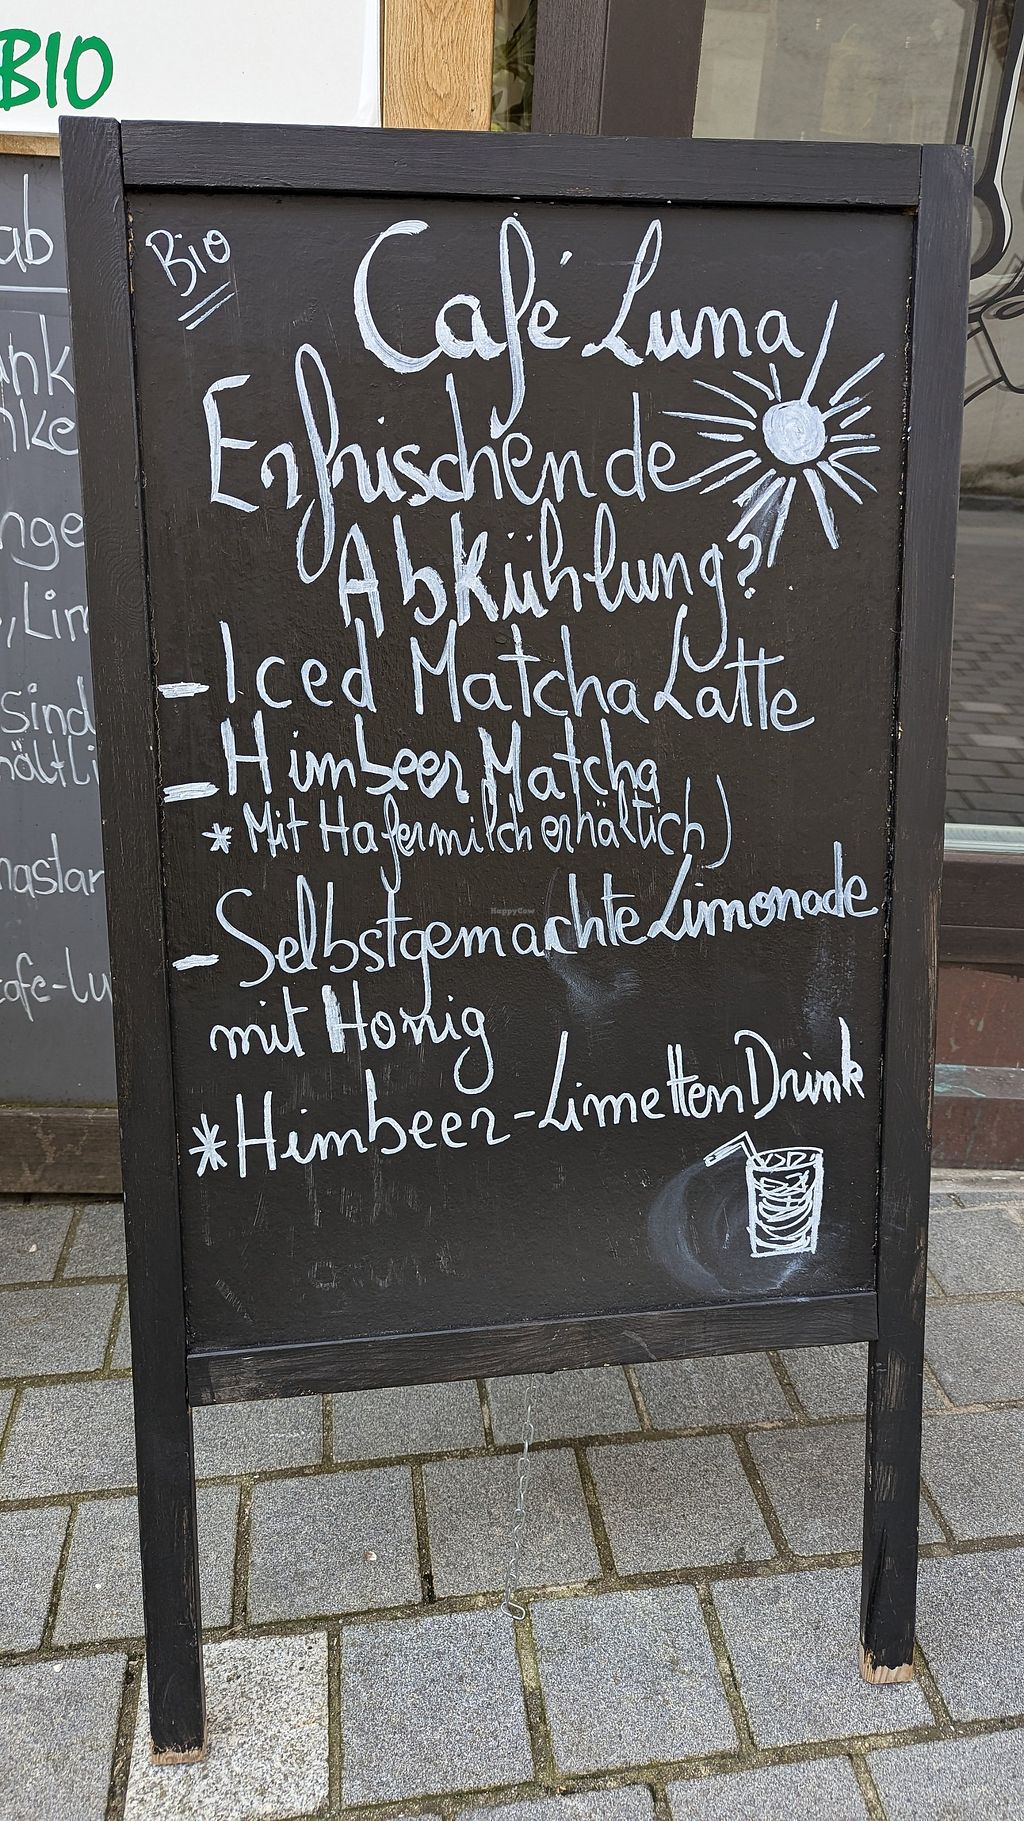 BIO
ab
ank
nke
nge
, Lim
sind
hältli
nastar
cafe-lu
Bio
Café Luna
Erfrischende
Abkühlung?
- Iced Matcha Latte
- Himbeer Matcha
* Mit Hafermilch erhältlich)
- Selbstgemachte Limonade
mit Honig
* Himbeer-Limetten Drink
HappyCow